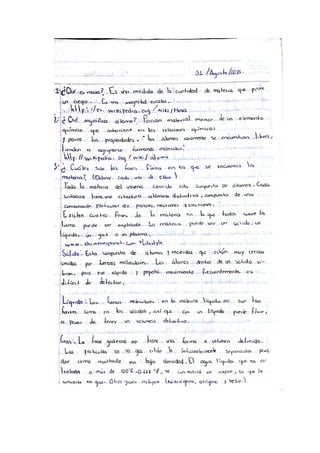 31 /Agosto/2015.
1-¿Qué es masa?. Es una medida de la cantidad de materia que posee
un cuerpo. Es una magnitud escalar.
http://es.wikipedia.org/wiki/Masa
2-¿Qué significa átomo?. Porción material menor de un elemento
químico que interviene en las relaciones químicas
y posee las propiedades. " los átomos raramente se encuentran libres,
tienden a agruparse formando moléculas".
http://wikipedia.org/wiki/atomo
3-¿Cuáles son las fases físicas en las que se encuentra la
materia? (Define cada una de ellas)
Toda la materia del universo conocido esta compuesta de átomos. Cada
sustancia tiene una estructura atómica distintiva, compuesta de una
combinación particular de protones, neutrones y electrones.
Existen cuatro fases de la materia en la que toda sobre la
tierra puede ser explicada. La materia puede ser un sólido, un
líquido, un gas o un plasma.
Sólido: Esta compuesta de átomos y moléculas que están muy cerca
unidas por fuerzas moleculares. Los átomos dentro de un sólido vi-
bran, pero ese rápido y pequeño movimiento frecuentemente es
difícil de detectar.
Líquido: Las fuerzas moleculares en la materia líquida no son tan
fuertes como en los sólidos, así que un líquido puede fluir,
a pesar de tener un volumen definitivo.
Gas: La fase gaseosa no tiene una forma o volumen definido.
Las partículas de un gas están lo suficientemente separadas para
dar como resultado una baja densidad. El agua líquida que se ca-
lienta a más de 100°C ó 212 °F, se convierte en vapor, lo que la
convierte en gas. Otros gases incluyen (hidrógeno, oxígeno y helio)